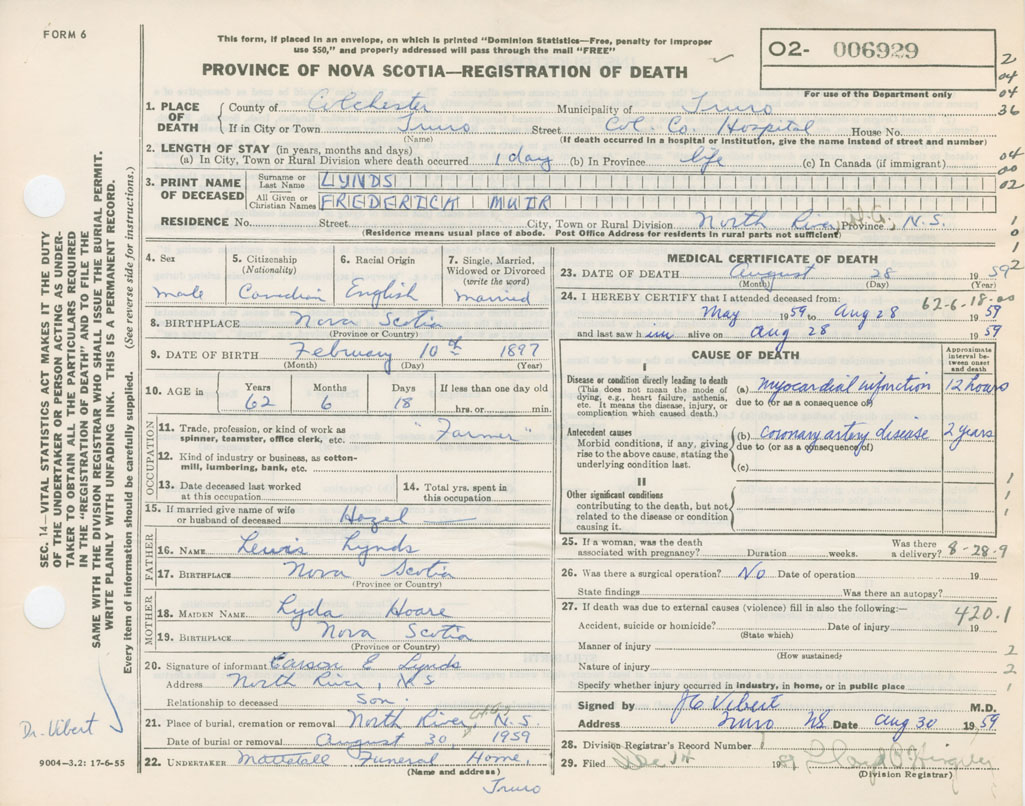 FORM 6
This form, if placed in an envelope, on which is printed "Dominion Statistics—Free, penalty for improper
use $50," and properly addressed will pass through the mail "FREE"
PROVINCE OF NOVA SCOTIA—REGISTRATION OF DEATH
O2- 006929
For use of the Department only
2
04
04
36
04
00
02
1
0
1
2
1. PLACE OF DEATH County of Colchester Municipality of Truro
If in City or Town Truro Street Col. Co. Hospital House No.
(Name) (If death occurred in a hospital or institution, give the name instead of street and number)
2. LENGTH OF STAY (in years, months and days)
(a) In City, Town or Rural Division where death occurred 1 day (b) In Province life (c) In Canada (if immigrant)
3. PRINT NAME OF DECEASED
Surname or Last Name LYNDS
All Given or Christian Names FREDERICK MUIR
RESIDENCE No. Street City, Town or Rural Division North River Province N.S.
(Residence means usual place of abode. Post Office Address for residents in rural parts not sufficient)
4. Sex
male
5. Citizenship
(Nationality)
Canadian
6. Racial Origin
English
7. Single, Married,
Widowed or Divorced
(write the word)
married
8. BIRTHPLACE Nova Scotia
(Province or Country)
9. DATE OF BIRTH February 10th 1897
(Month) (Day) (Year)
10. AGE in Years Months Days If less than one day old
62 6 18 hrs. or min.
OCCUPATION
11. Trade, profession, or kind of work as
spinner, teamster, office clerk, etc. "Farmer"
12. Kind of industry or business, as cotton-
mill, lumbering, bank, etc.
13. Date deceased last worked
at this occupation
14. Total yrs. spent in
this occupation
15. If married give name of wife
or husband of deceased Hazel
FATHER
16. NAME Lewis Lynds
17. BIRTHPLACE Nova Scotia
(Province or Country)
MOTHER
18. MAIDEN NAME Lyda Hoare
19. BIRTHPLACE Nova Scotia
(Province or Country)
20. Signature of informant Carson E Lynds
Address North River, N.S
Relationship to deceased Son.
21. Place of burial, cremation or removal North River, N.S.
Date of burial or removal August 30, 1959
22. UNDERTAKER Mattatall Funeral Home,
(Name and address)
Truro
MEDICAL CERTIFICATE OF DEATH
23. DATE OF DEATH August 28 1959
(Month) (Day) (Year)
24. I HEREBY CERTIFY that I attended deceased from:
62-6-18-00
May 1959 to Aug 28 1959
and last saw him alive on Aug 28 1959
CAUSE OF DEATH
Approximate
interval be-
tween onset
and death
I
Disease or condition directly leading to death
(This does not mean the mode of
dying, e.g., heart failure, asthenia,
etc. It means the disease, injury, or
complication which caused death.)
(a) myocardial infarction 12 hours
due to (or as a consequence of)
Antecedent causes
Morbid conditions, if any, giving
rise to the above cause, stating the
underlying condition last.
(b) coronary artery disease 2 years
due to (or as a consequence of)
(c)
II
Other significant conditions
contributing to the death, but not
related to the disease or condition
causing it.
1
1
1
25. If a woman, was the death
associated with pregnancy? Duration weeks. Was there
a delivery? 8-28-9
26. Was there a surgical operation? No Date of operation 19
State findings Was there an autopsy?
27. If death was due to external causes (violence) fill in also the following:—
420.1
Accident, suicide or homicide? Date of injury 19
(State which)
Manner of injury 2
(How sustained)
Nature of injury 2
Specify whether injury occurred in industry, in home, or in public place 1
Signed by JC Vibert M.D.
Address Truro NS. Date Aug 30 1959
28. Division Registrar's Record Number
29. Filed 19
(Division Registrar)
SEC. 14—VITAL STATISTICS ACT MAKES IT THE DUTY
OF THE UNDERTAKER OR PERSON ACTING AS UNDER-
TAKER TO OBTAIN ALL THE PARTICULARS REQUIRED
IN THE "REGISTRATION OF DEATH" AND TO FILE THE
SAME WITH THE DIVISION REGISTRAR WHO SHALL ISSUE THE BURIAL PERMIT.
WRITE PLAINLY WITH UNFADING INK. THIS IS A PERMANENT RECORD.
Every item of information should be carefully supplied. (See reverse side for instructions.)
Dr. Vibert
9004-3.2: 17-6-55